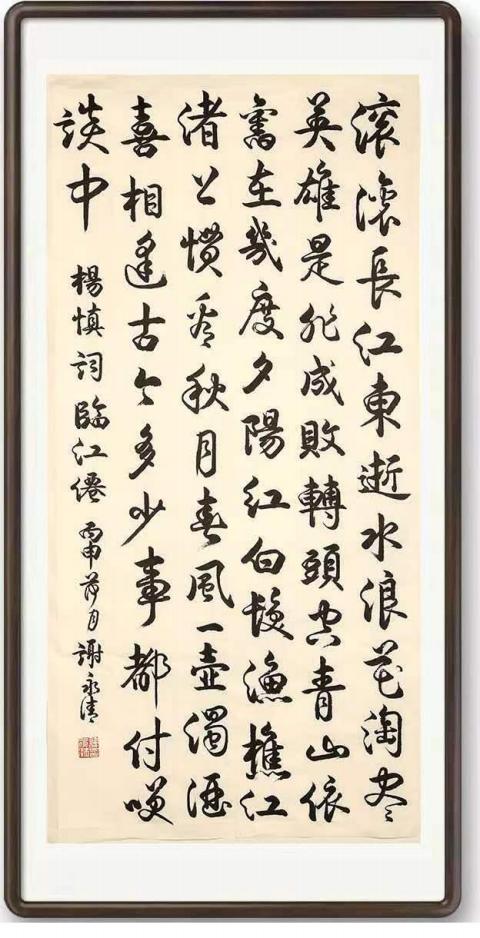 滚滚長江東逝水浪花淘尽
英雄是非成敗轉頭空青山依
舊在幾度夕陽紅白髮漁樵江
渚上慣看秋月春風一壺濁酒
喜相逢古今多少事都付笑
談中
楊慎詞臨江僊 丙申荷月 謝永清